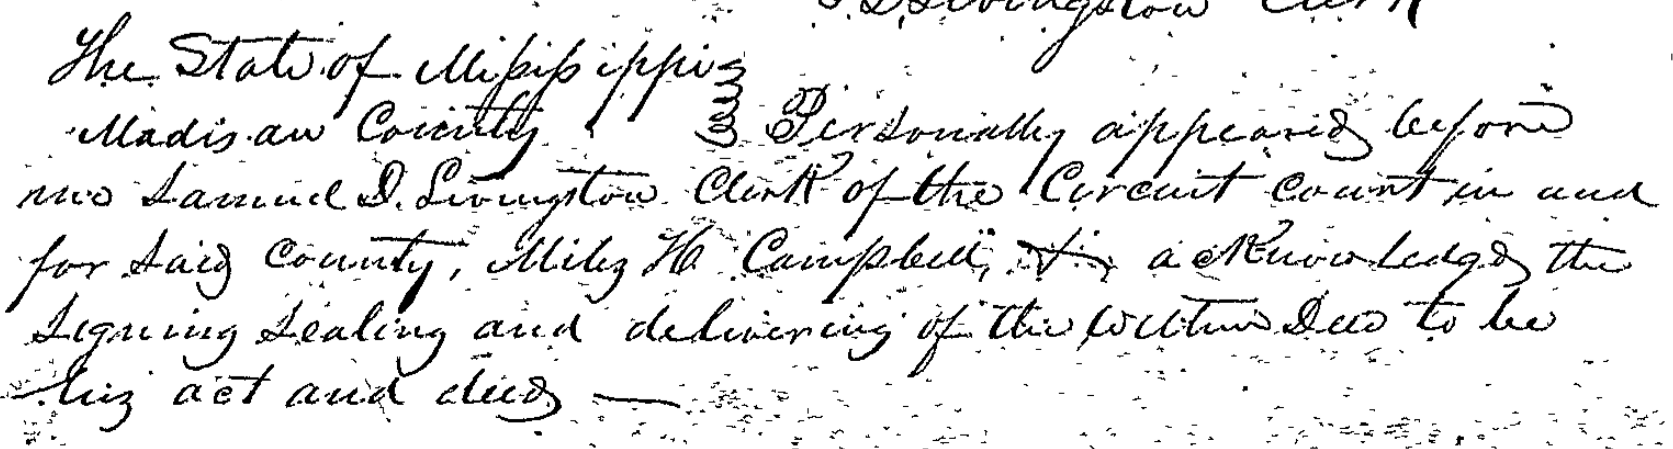 S. D. Livingston Clerk
The State of Mississippi
Madison County } Personally appeared before
me Samuel D. Livingston Clerk of the Circuit court in and
for said County, Miles H Campbell, & acknowledged the
signing sealing and delivering of the within Deed to be
his act and deed —